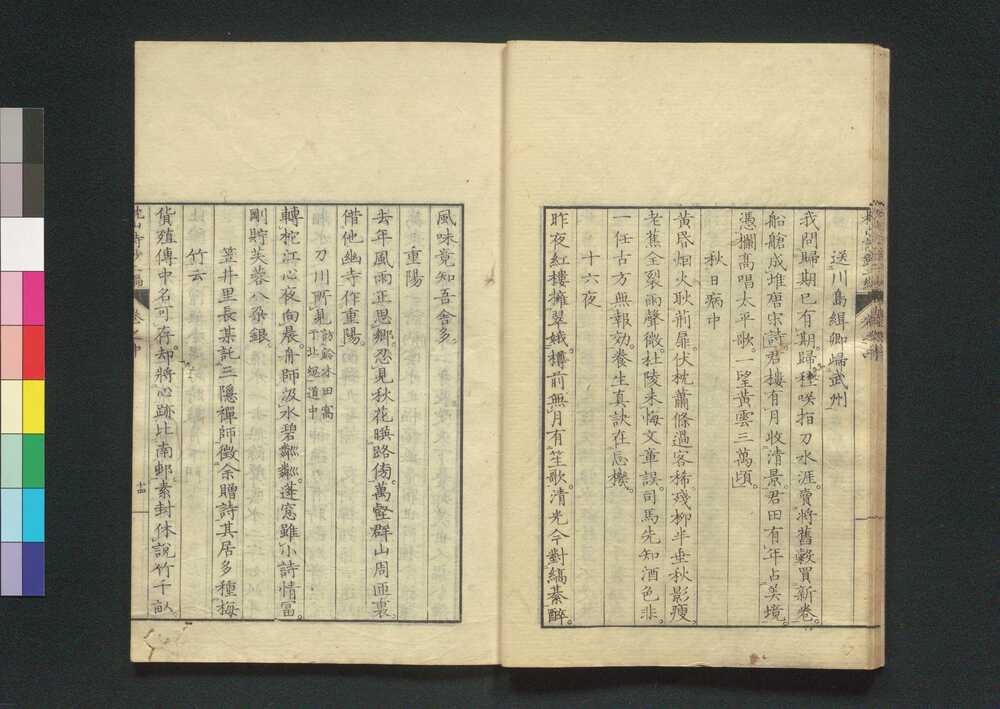 送川島緝卿歸武州
我問歸期已有期歸種咲指刀水涯賣將舊穀買新卷
船艙成堆唐宋詩君樓有月收清景君田有年占美境
憑攔高唱太平歌一望黃雲三萬頃
秋日病中
黃昏烟火耿荊扉伏枕蕭條過客稀殘柳半垂秋影瘦
老蕉全裂雨聲微杜陵未悔文章誤司馬先知酒色非
一任古方無報効養生真訣在忘機
十六夜
昨夜紅樓擁翠娥樽前無月有笙歌清光今對縞綦醉
風味竟知吾舍多
重陽
去年風雨正思鄉忍見秋花暎路傍萬壑群山周匝裏
借他幽寺作重陽
刀川所見訪鈴木田寫于北總道中
轉柁江心夜向晨舟師汲水碧粼粼蓬窓雖小詩情富
剛貯芙蓉八朶銀
笠井里長某託三隱禪師徵余贈詩其居多種梅
竹云
貨殖傳中名可存却將心跡比南邨素封休說竹千畝
枕山詩鈔二編 卷之中 十四